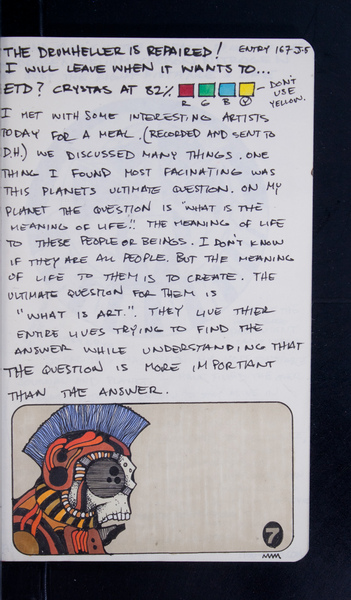 THE DRUMHELLER IS REPAIRED! ENTRY 167 J.5
I WILL LEAVE WHEN IT WANTS TO...
ETD? CRYSTAS AT 82% DON'T USE YELLOW.
R G B Y
I MET WITH SOME INTERESTING ARTISTS
TODAY FOR A MEAL. (RECORDED AND SENT TO
D.H.) WE DISCUSSED MANY THINGS. ONE
THING I FOUND MOST FACINATING WAS
THIS PLANETS ULTIMATE QUESTION. ON MY
PLANET THE QUESTION IS "WHAT IS THE
MEANING OF LIFE". THE MEANING OF LIFE
TO THESE PEOPLE OR BEINGS. I DON'T KNOW
IF THEY ARE ALL PEOPLE. BUT THE MEANING
OF LIFE TO THEM IS TO CREATE. THE
ULTIMATE QUESTION FOR THEM IS
"WHAT IS ART.". THEY LIVE THIER
ENTIRE LIVES TRYING TO FIND THE
ANSWER WHILE UNDERSTANDING THAT
THE QUESTION IS MORE IMPORTANT
THAN THE ANSWER.
7